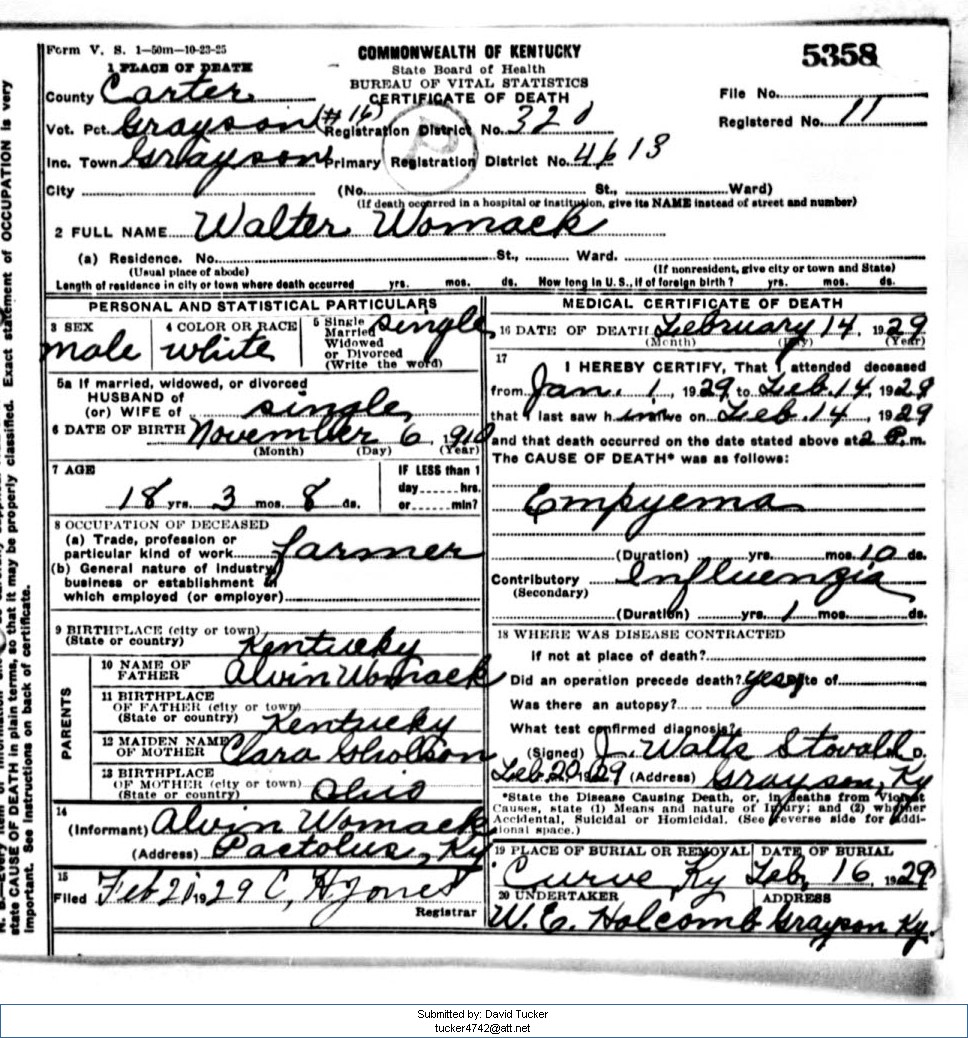 Form V. S. 1—50m—10-23-25
COMMONWEALTH OF KENTUCKY
State Board of Health
BUREAU OF VITAL STATISTICS
CERTIFICATE OF DEATH
5358
File No.
Registered No. 11
1 PLACE OF DEATH
County Carter
Vot. Pct. Grayson (#16) Registration District No. 320
Inc. Town Grayson Primary Registration District No. 4613
City (No. St., Ward)
(If death occurred in a hospital or institution, give its NAME instead of street and number)
2 FULL NAME Walter Womack
(a) Residence. No. St., Ward.
(Usual place of abode) (If nonresident, give city or town and State)
Length of residence in city or town where death occurred yrs. mos. ds. How long in U. S., if of foreign birth? yrs. mos. ds.
PERSONAL AND STATISTICAL PARTICULARS
3 SEX male
4 COLOR OR RACE white
5 Single Married Widowed or Divorced (Write the word) single
5a If married, widowed, or divorced
HUSBAND of
(or) WIFE of single
6 DATE OF BIRTH November 6, 1910
(Month) (Day) (Year)
7 AGE
18 yrs. 3 mos. 8 ds.
IF LESS than 1
day hrs.
or min?
8 OCCUPATION OF DECEASED
(a) Trade, profession or
particular kind of work farmer
(b) General nature of industry
business or establishment in
which employed (or employer)
9 BIRTHPLACE (city or town)
(State or country) Kentucky
PARENTS
10 NAME OF
FATHER Alvin Womack
11 BIRTHPLACE
OF FATHER (city or town)
(State or country) Kentucky
12 MAIDEN NAME
OF MOTHER Clara Gholson
13 BIRTHPLACE
OF MOTHER (city or town)
(State or country) Ohio
14
(Informant) Alvin Womack
(Address) Pactolus, Ky
15
Filed Feb 21 1929 C. H. Jones
Registrar
MEDICAL CERTIFICATE OF DEATH
16 DATE OF DEATH February 14, 1929
(Month) (Day) (Year)
17
I HEREBY CERTIFY, That I attended deceased
from Jan. 1, 1929 to Feb. 14, 1929
that I last saw h im alive on Feb. 14, 1929
and that death occurred on the date stated above at 2 P. m.
The CAUSE OF DEATH* was as follows:
Empyema
(Duration) yrs. mos. 10 ds.
Contributory Influenzia
(Secondary)
(Duration) yrs. 1 mos. ds.
18 WHERE WAS DISEASE CONTRACTED
If not at place of death?
Did an operation precede death? yes Date of
Was there an autopsy?
What test confirmed diagnosis?
(Signed) J. Watts Stovall M. D.
Feb. 20, 1929 (Address) Grayson, Ky
*State the Disease Causing Death, or, in deaths from Violent
Causes, state (1) Means and nature of Injury; and (2) whether
Accidental, Suicidal or Homicidal. (See reverse side for addi-
tional space.)
19 PLACE OF BURIAL OR REMOVAL
Curve, Ky
DATE OF BURIAL
Feb. 16, 1929
20 UNDERTAKER
W. E. Holcomb
ADDRESS
Grayson Ky.
state CAUSE OF DEATH in plain terms, so that it may be properly classified. Exact statement of OCCUPATION is very
important. See instructions on back of certificate.
Submitted by: David Tucker
tucker4742@att.net